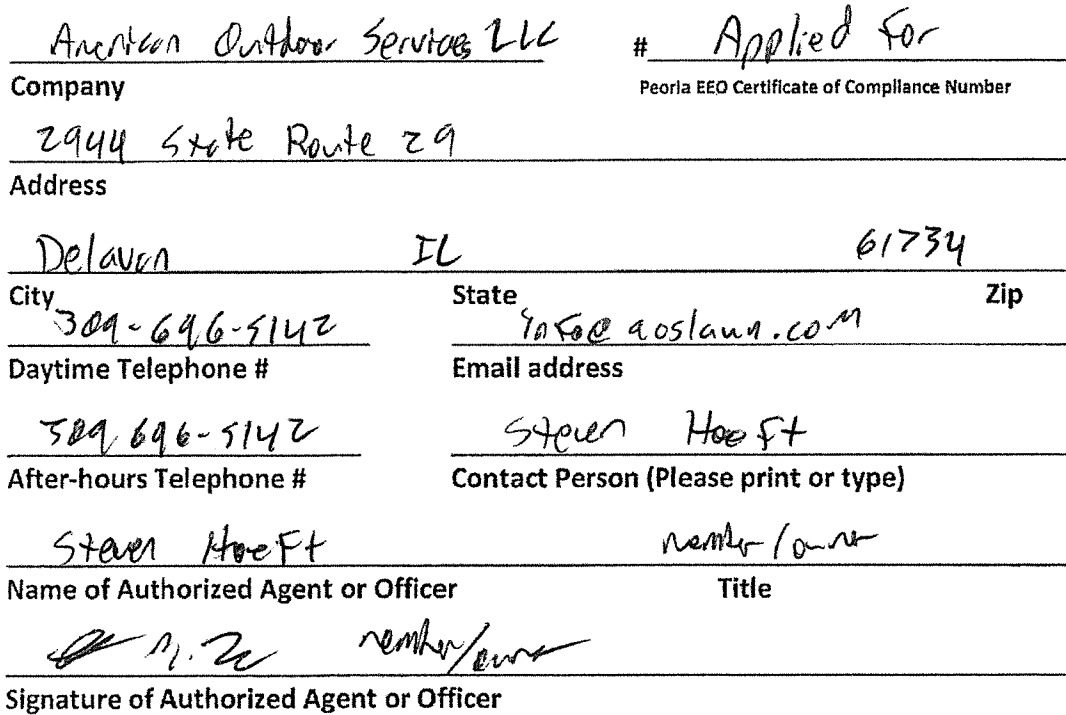 American Outdoor Services LLC # Applied For
Company Peoria EEO Certificate of Compliance Number
2944 State Route 29
Address
Delavan IL 61734
City State Zip
309-696-5142 info@aoslawn.com
Daytime Telephone # Email address
309 696-5142 Steven Hoeft
After-hours Telephone # Contact Person (Please print or type)
Steven Hoeft member/owner
Name of Authorized Agent or Officer Title
member/owner
Signature of Authorized Agent or Officer